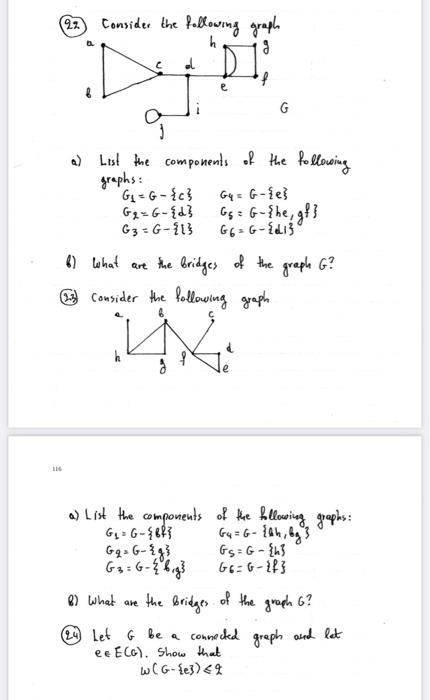 22 Consider the following graph
a h g
c d
b e f
i
j G
a) List the components of the following
graphs:
G1 = G - {c} G4 = G - {e}
G2 = G - {d} G5 = G - {he, gf}
G3 = G - {i} G6 = G - {di}
b) What are the bridges of the graph G?
23 Consider the following graph
a b c
h g f d
e
116
a) List the components of the following graphs:
G1 = G - {bf} G4 = G - {ah, bg}
G2 = G - {g} G5 = G - {h}
G3 = G - {b,g} G6 = G - {f}
b) What are the bridges of the graph G?
24 Let G be a connected graph and let
e ∈ E(G). Show that
w(G - {e}) ≤ 2